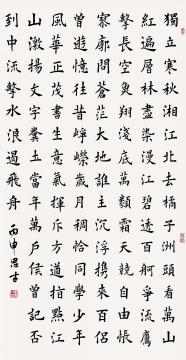 獨立寒秋湘江北去橘子洲頭看萬山
紅遍層林盡染漫江碧透百舸爭流鷹
擊長空魚翔淺底萬類霜天競自由悵
寥廓問蒼茫大地誰主沉浮攜來百侶
曾遊憶往昔崢嶸歲月稠恰同學少年
風華正茂書生意氣揮斥方遒指點江
山激揚文字糞土當年萬戶侯曾記否
到中流擊水浪遏飛舟
丙申